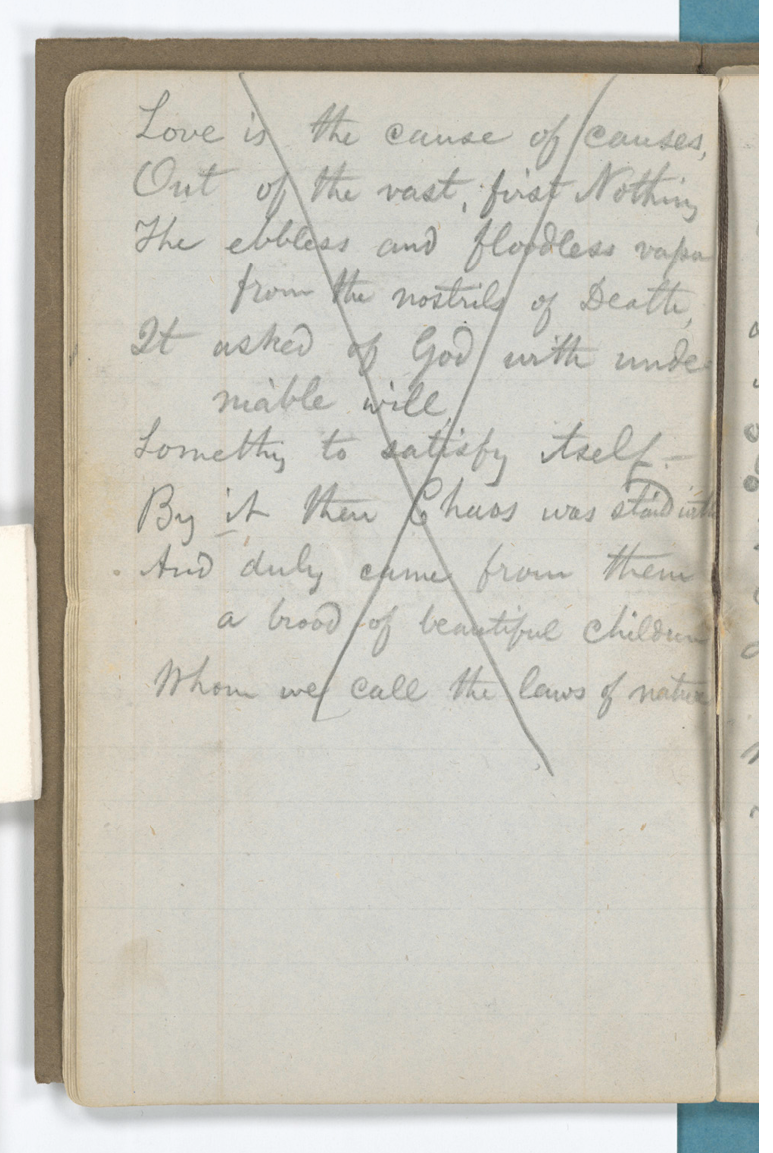 Love is the cause of causes,
Out of the vast, first Nothing
The ebbless and floodless vapor
from the nostrils of Death,
It asked of God with unde-
niable will,
Something to satisfy itself.—
By it then Chaos was staid with
And duly came from them
a brood of beautiful children
Whom we call the laws of nature